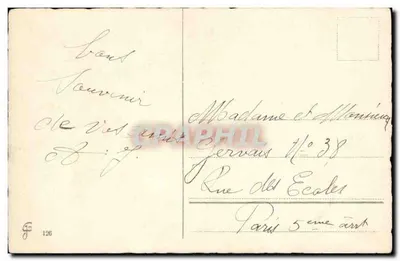 bons
Souvenir
de vos
Madame et Monsieur
Gervais No 38
Rue des Ecoles
Paris 5eme arrt
126